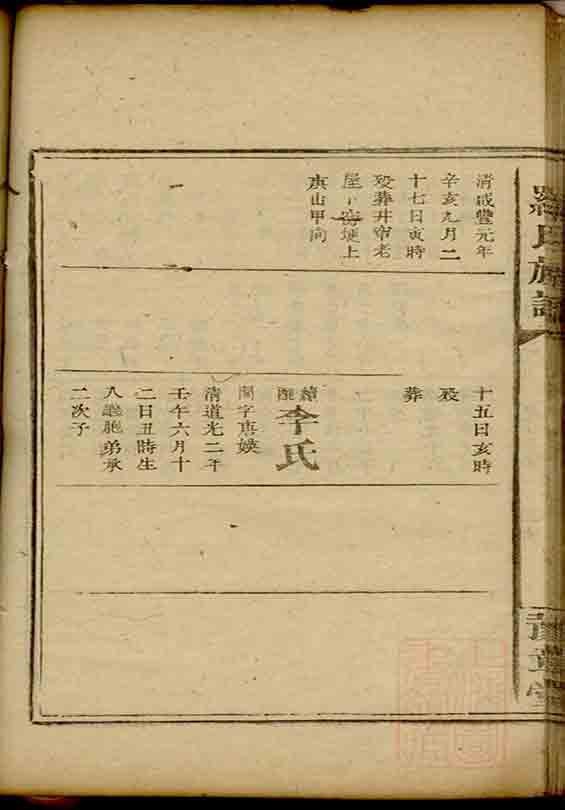 羅氏族譜
豫章堂
清咸豐元年
辛亥九月二
十七日寅時
歿葬井帘老
屋下窑埂上
庚山甲向
十五日亥時
歿
葬
續配李氏
閨字惠媖
清道光二年
壬午六月十
二日丑時生
入繼胞弟承
二次子